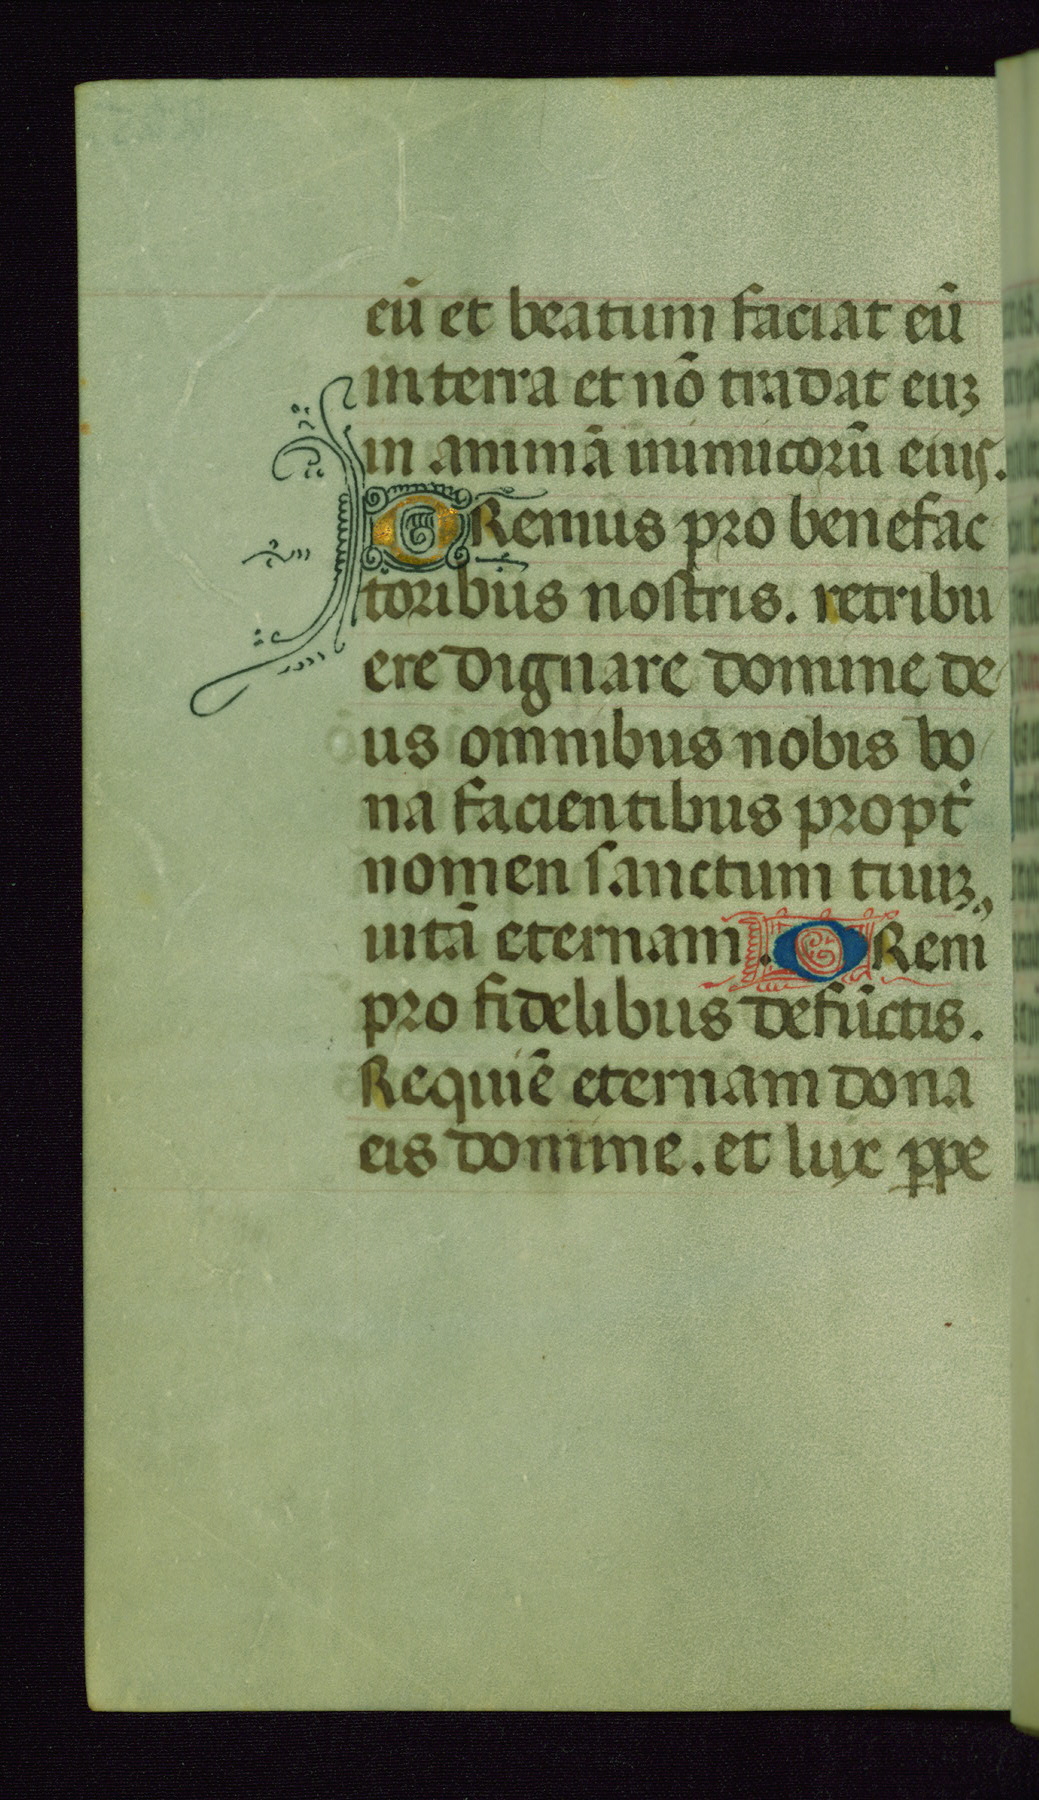 eū et beatum faciat eū
in terra et nō tradat euʒ
in animā inimicorū eius.
ORemus pro benefac
toribus nostris. retribu
ere dignare domine de
us omnibus nobis bo
na facientibus propt᷑
nomen sanctum tuuʒ,
uitā eternam. ORem
pro fidelibus defūctis.
Requiē eternam dona
eis domine. et lux ꝑpe